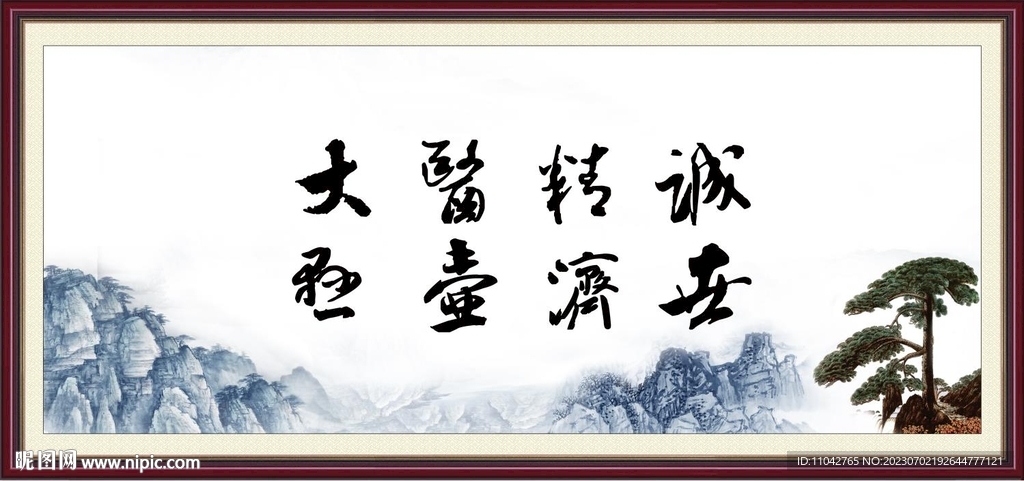 大醫精誠
懸壺濟世
昵图网 www.nipic.com
ID:11042765 NO:20230702192644777121